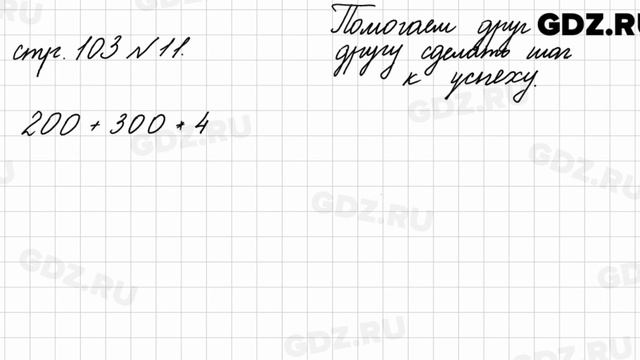 Помогаем друг GDZ.RU
стр. 103 № 11. другу сделать шаг
к успеху.
200 + 300 * 4
GDZ.RU
GDZ.RU
GDZ.RU
GDZ.RU
GDZ.RU
GDZ.RU
GDZ.RU